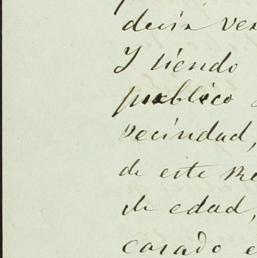 decir ver
Y siendo
publico
vecindad,
de este Re
de edad,
casado e